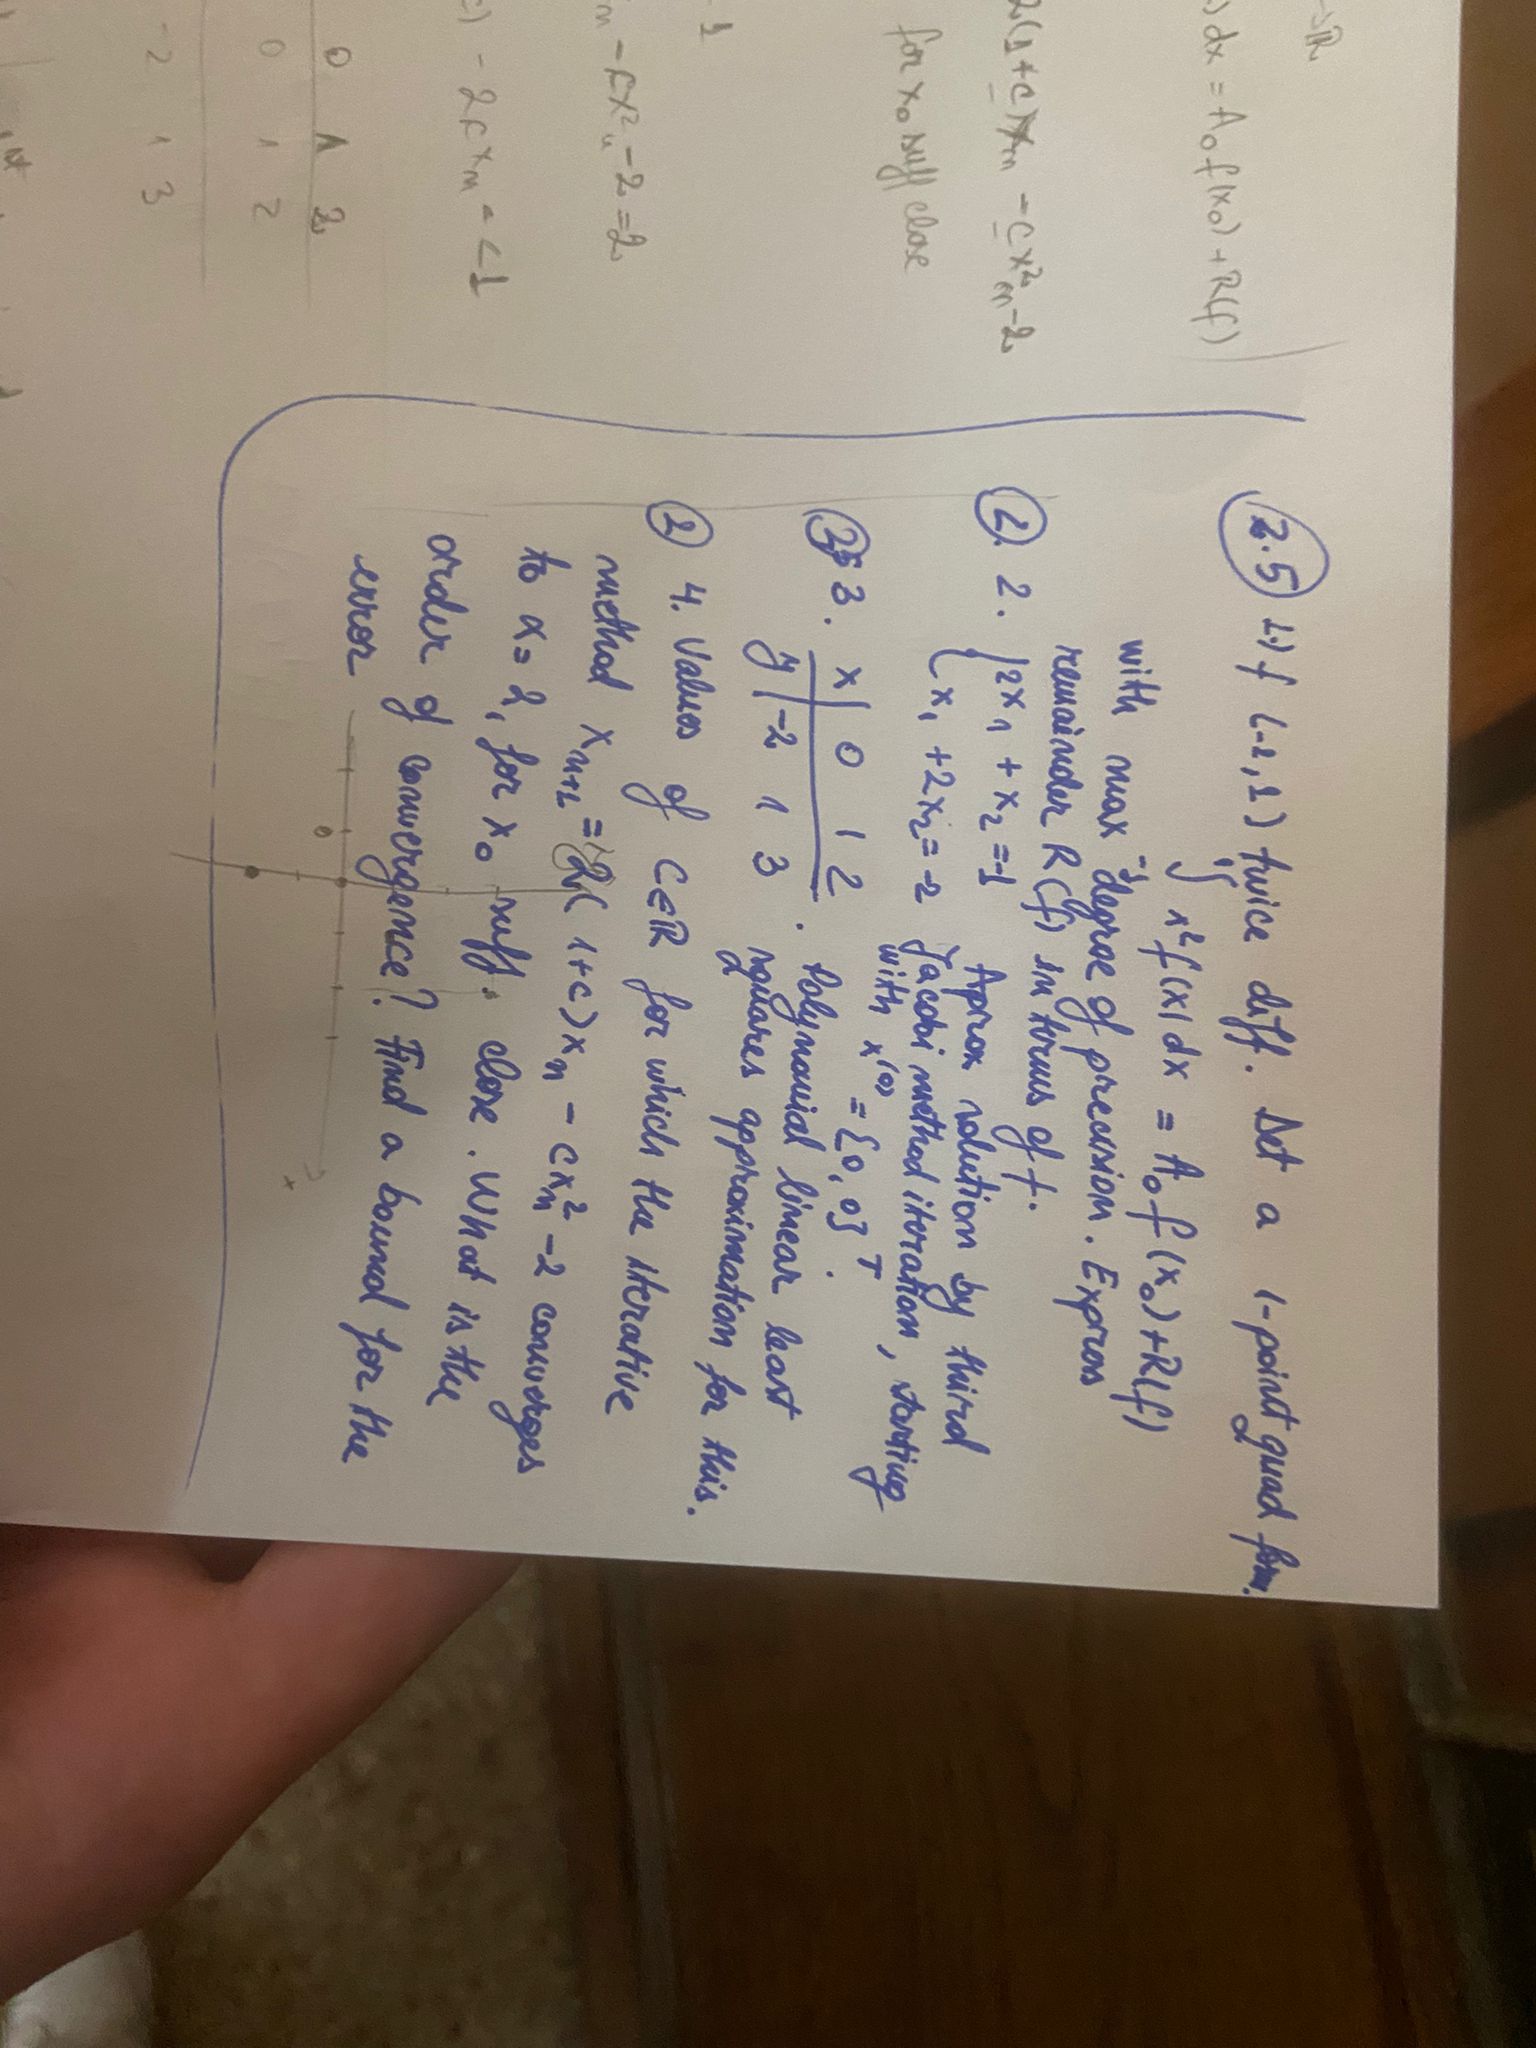 →ℝ
)dx = A₀ f(x₀) + R(f)
2(1+c)xₙ - cx²ₙ - 2
for x₀ suff close
-1
ₙ - cx²ₙ - 2 = 2
c) - 2cxₙ = <1
0 1 2
0 1 2
-2 1 3
2.5 1.) f (-1,1) twice diff. Det a 1-point quad form.
₋₁∫¹ x² f(x) dx = A₀ f(x₀) + R(f)
with max degree of precision. Express
remainder R(f) in terms of f.
2. 2. { 2x₁ + x₂ = -1 Aprox solution by third
x₁ + 2x₂ = -2 Jacobi method iteration, starting
with x⁽⁰⁾ = {0, 0}ᵀ.
3. x | 0 1 2 . Polynomial linear least
y | -2 1 3 squares approximation for this.
2 4. Values of C∈ℝ for which the iterative
method xₙ₊₁ = 2(1+c)xₙ - cxₙ² - 2 converges
to α = 2, for x₀ suff. close. What is the
order of convergence? Find a bound for the
error
0
+